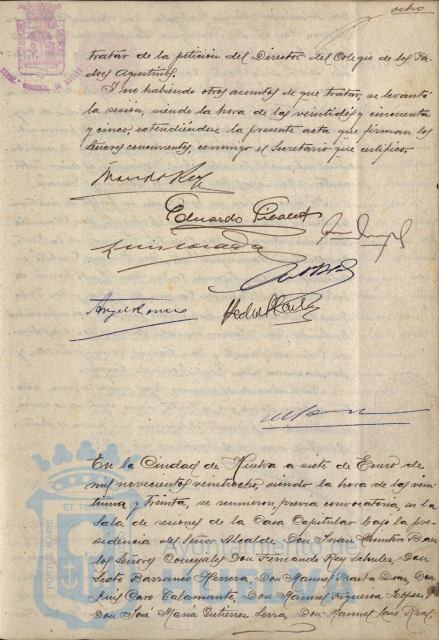 ocho
tratar de la petición del Director del Colegio de los Pa-
dres Agustinos.
Y no habiendo otros asuntos de que tratar, se levantó
la sesión, siendo la hora de las veintidos y cincuenta
y cinco, extendiéndose la presente acta que firman los
Señores concurrentes, conmigo el Secretario que certifico.
Eduardo
En la Ciudad de Huelva a siete de Enero de
mil novecientos veintiocho, siendo la hora de las vein-
tiuna y treinta, se reunieron, previa convocatoria, en la
Sala de sesiones de la Casa Capitular bajo la pre-
sidencia del Señor Alcalde Don Juan Quintero Baez
los Señores Concejales Don Fernando Rey Don
Sixto Barranco Herrera, Don Manuel Barba Diaz, Don
Luis Caro Calamante, Don Manuel Figueroa Lopez,
Don José María Gutierrez Serra, Don Manuel José